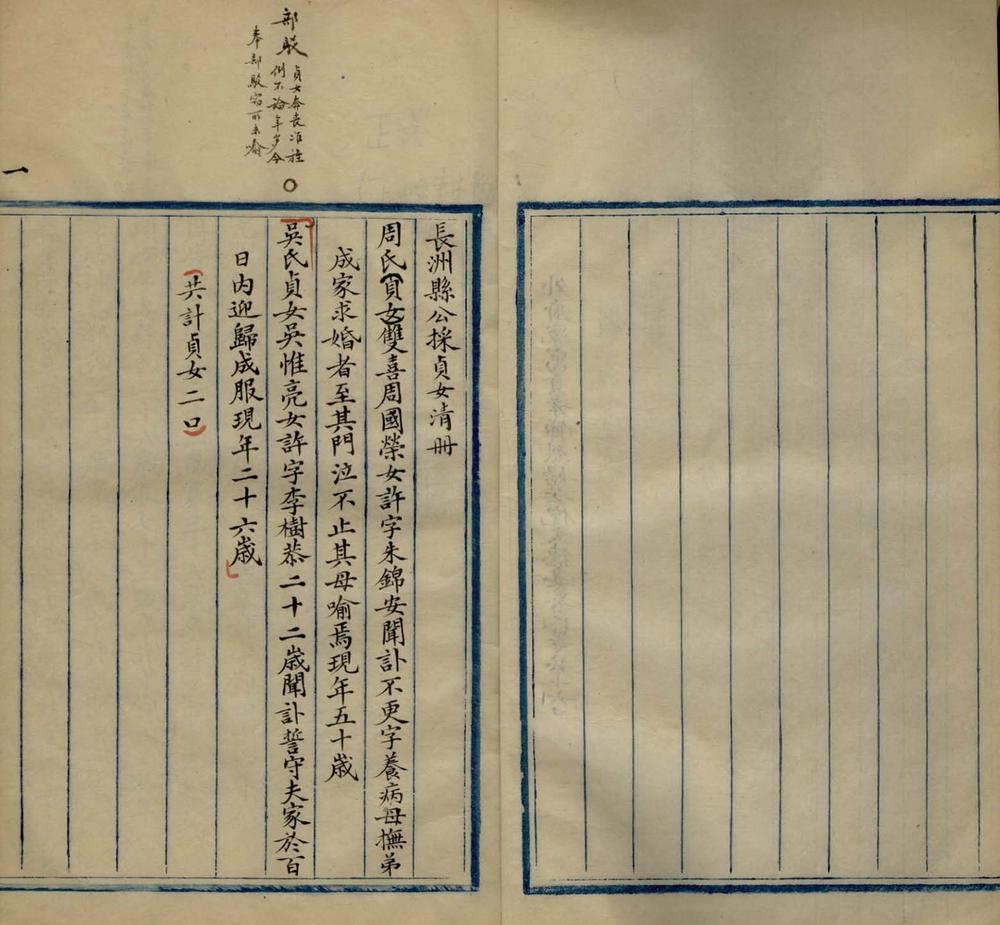 部駁
貞女奔喪准旌
例不論年岁今
奉部駁竊所未喻
一
長洲縣公採貞女清冊
周氏貞女雙喜周國榮女許字朱錦安聞訃不更字養病母撫弟
成家求婚者至其門泣不止其母喻焉現年五十歲
吳氏貞女吳惟亮女許字李樹恭二十二歲聞訃誓守夫家於百
日內迎歸成服現年二十六歲
共計貞女二口